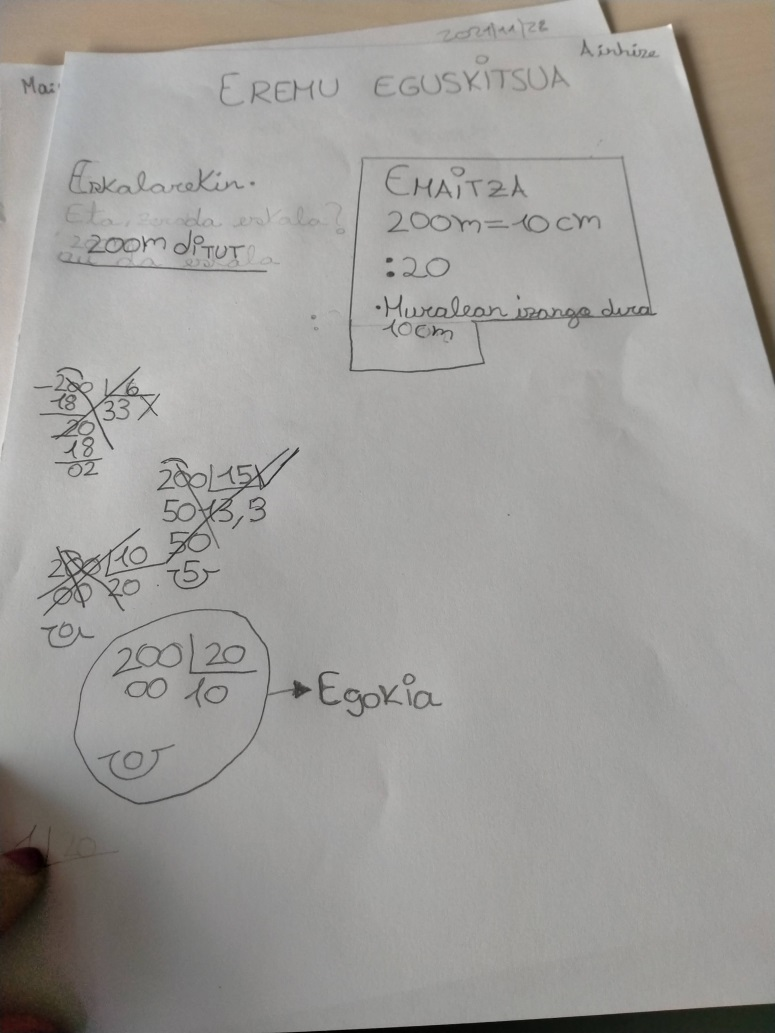 2021/11/28
Ainhize
Mai
EREMU EGUSKITSUA
Eskalarekin.
Eta, zer da eskala?
200m diTUT
da eskala
EMAiTZA
200m=10cm
:20
·Muralean izango dira
10cm
-200 6
18 33
20
18
02
200 15
50 13,3
50
5
200 10
00 20
0
200 20
00 10
0
Egokia